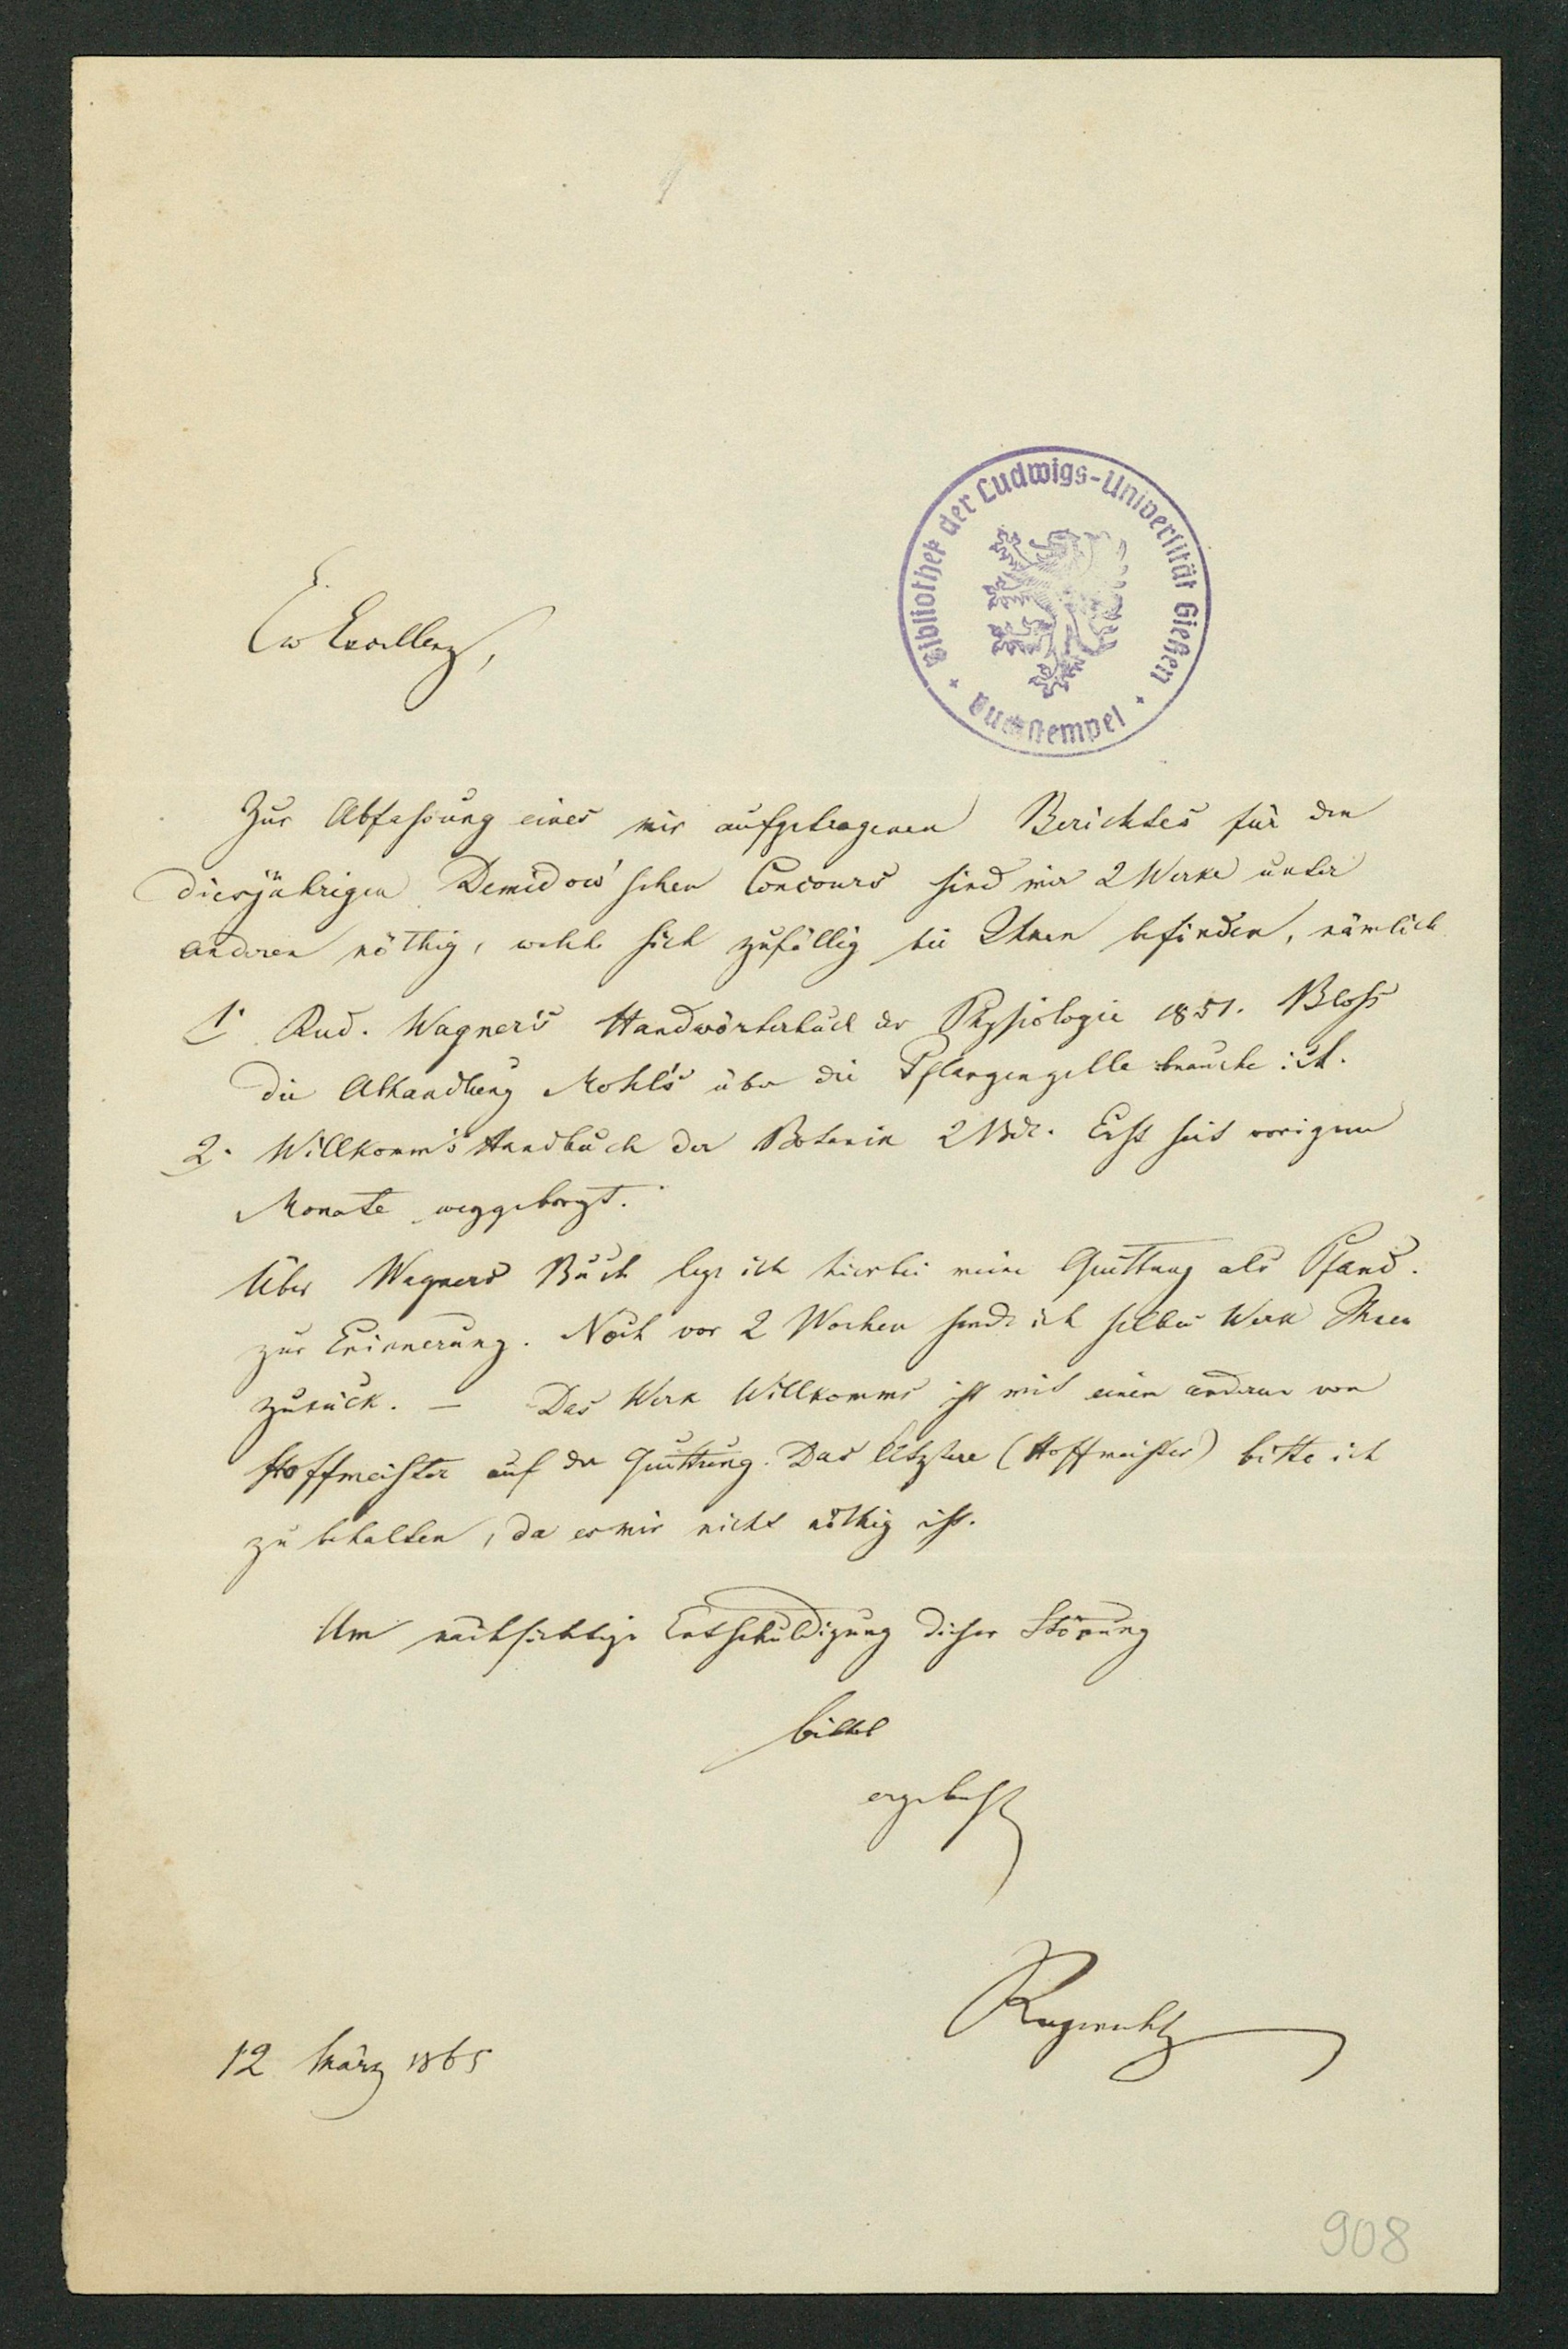 Bibliothek der Ludwigs-Universität Gießen
Buchstempel
Ew Excellenz,
Zur Abfassung eines mir aufgetragenen Berichtes für den
diesjährigen Demidow'schen Concours sind mir 2 Werke unter
anderen nöthig, welche sich zufällig bei Ihnen befinden, nämlich
1. Rud. Wagner's Handwörterbuch der Physiologie 1851. Bloss
die Abhandlung Mohl's über die Pflanzenzelle brauche ich.
2. Willkomm's Handbuch der Botanik 2 Bde. Erst seit vorigem
Monate weggeborgt.
Über Wagners Buch lege ich hierbei meine Quittung als Pfand.
zur Erinnerung. Noch vor 2 Wochen sende ich selbes Werk Ihnen
zurück. — Das Werk Willkomms ist mit einem anderen von
Hoffmeister auf der Quittung. Das letztere (Hoffmeister) bitte ich
zu behalten, da es mir nicht nöthig ist.
Um nachsichtige Entschuldigung dieser Störung
bittet
ergebenst
Ruprecht
12 März 1865
908